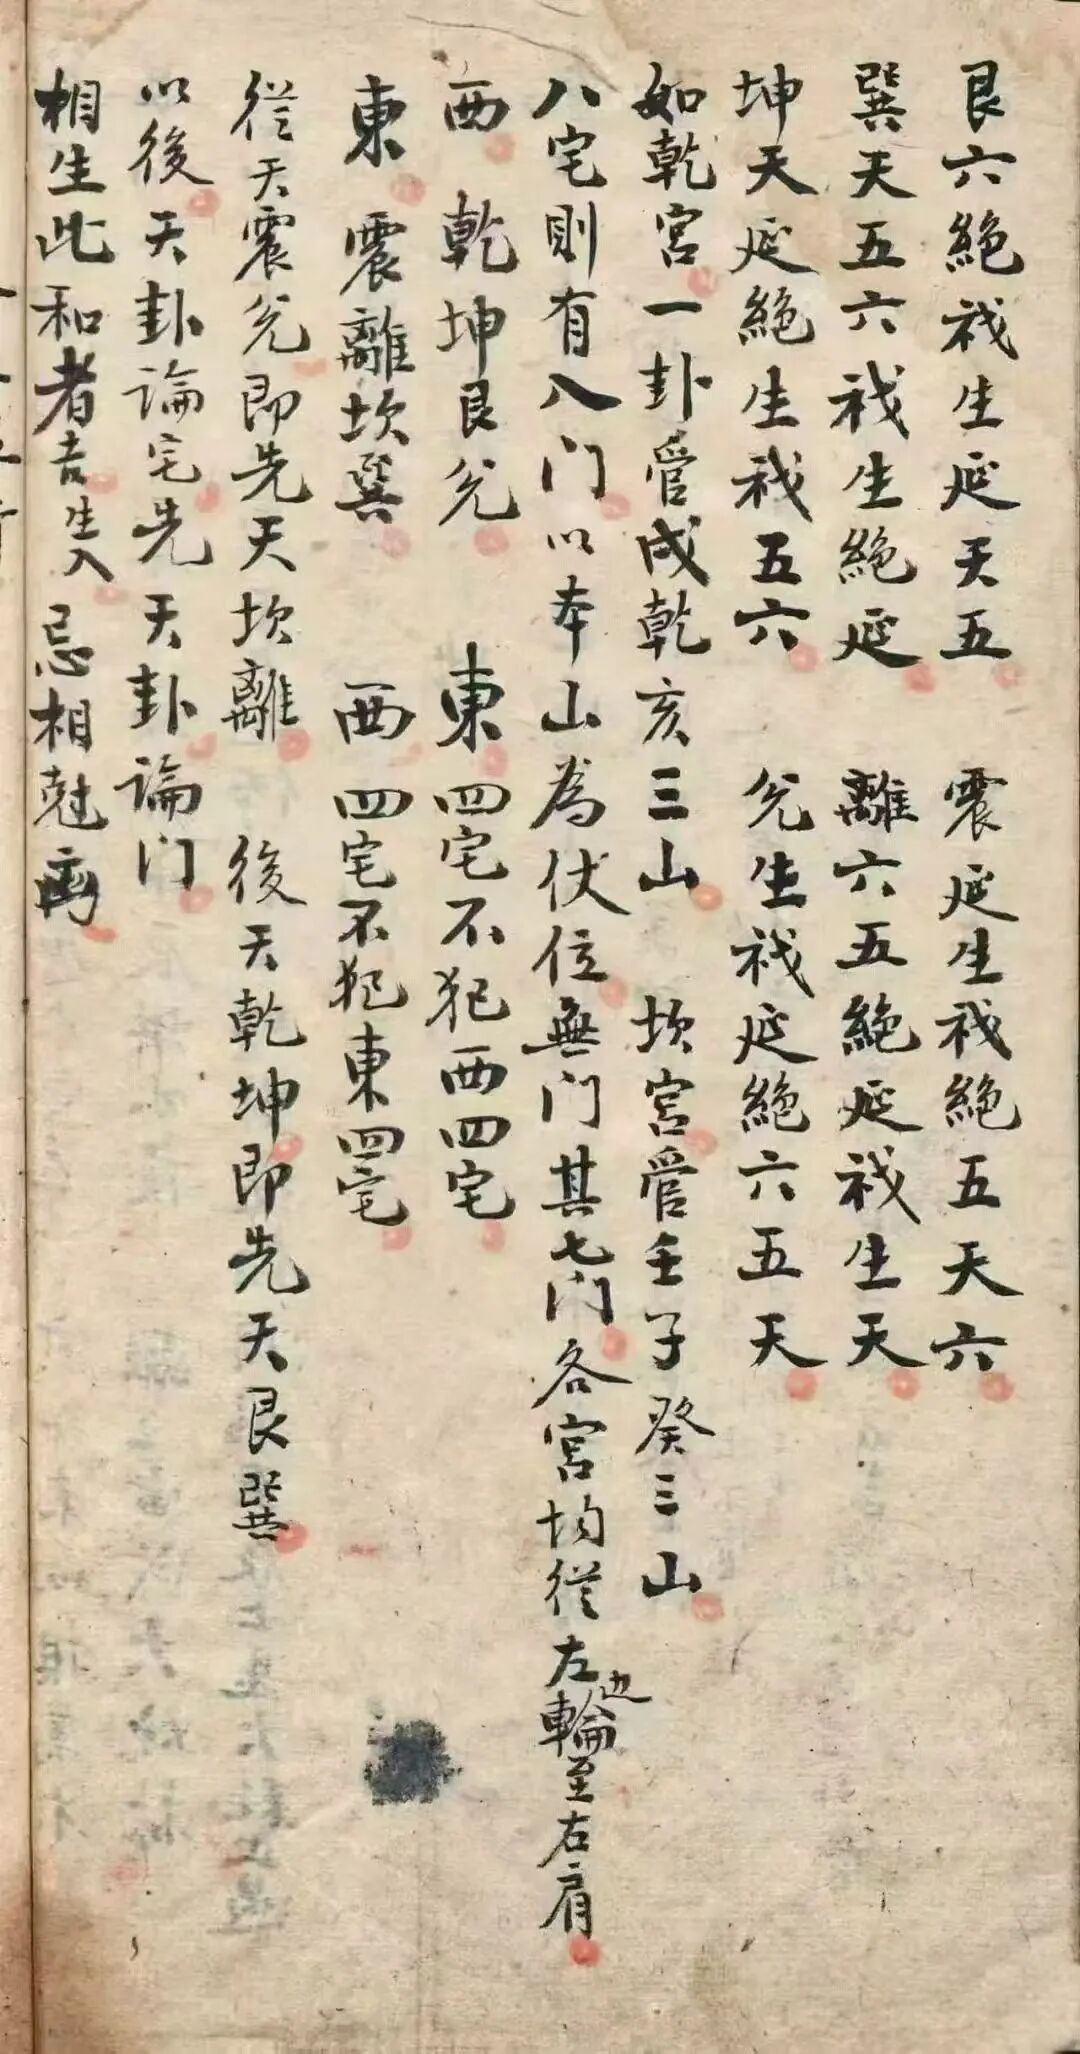 艮六絕祸生延天五　震延生祸絕五天六
巽天五六祸生絕延　離六五絕延祸生天
坤天延絕生祸五六　兊生祸延絕六五天
如乾宮一卦管戍乾亥三山　坎宮管壬子癸三山
八宅則有八门以本山為伏位無门其七门各宮均從左边輪至右肩
西　乾坤艮兊　東四宅不犯西四宅
東　震離坎巽　西四宅不犯東四宅
後天震兊即先天坎離　後天乾坤即先天艮巽
以後天卦論宅先天卦論门
相生比和者吉生入忌相尅